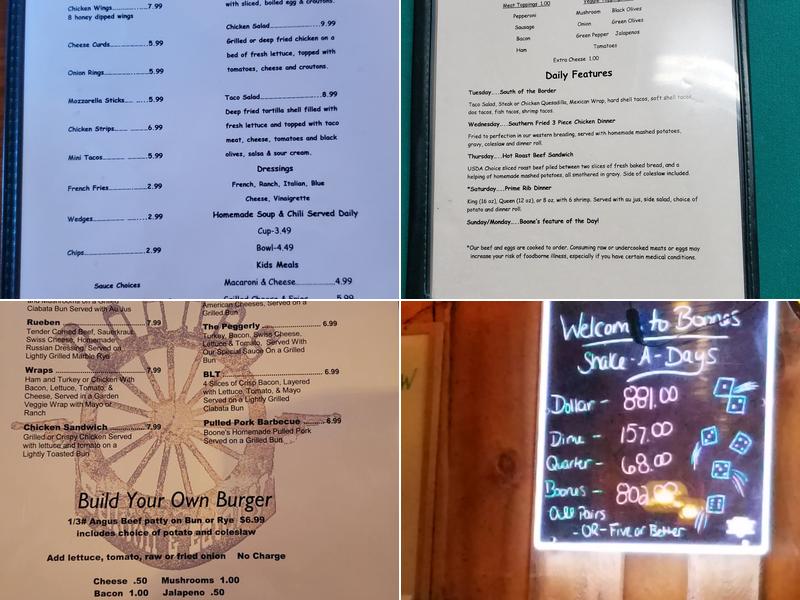 Chicken Wings............7.99
8 honey dipped wings
Cheese Curds.....5.99
Onion Rings........5.99
Mozzarella Sticks.......5.99
Chicken Strips............6.99
Mini Tacos...............5.99
French Fries...............2.99
Wedges....................2.99
Chips.......................2.99
Sauce Choices
with sliced, boiled egg & croutons.
Chicken Salad...................9.99
Grilled or deep fried chicken on a
bed of fresh lettuce, topped with
tomatoes, cheese and croutons.
Taco Salad.......................8.99
Deep fried tortilla shell filled with
fresh lettuce and topped with taco
meat, cheese, tomatoes and black
olives, salsa & sour cream.
Dressings
French, Ranch, Italian, Blue
Cheese, Vinaigrette
Homemade Soup & Chili Served Daily
Cup-3.49
Bowl-4.49
Kids Meals
Macaroni & Cheese...............4.99
Grilled Cheese & Fries 5.99
Meat Toppings 1.00
Pepperoni
Sausage
Bacon
Ham
Mushroom Black Olives
Onion Green Olives
Green Pepper Jalapenos
Tomatoes
Extra Cheese 1.00
Daily Features
Tuesday....South of the Border
Taco Salad, Steak or Chicken Quesadilla, Mexican Wrap, hard shell tacos, soft shell tacos,
dos tacos, fish tacos, shrimp tacos.
Wednesday....Southern Fried 3 Piece Chicken Dinner
Fried to perfection in our western breading, served with homemade mashed potatoes,
gravy, coleslaw and dinner roll.
Thursday....Hot Roast Beef Sandwich
USDA Choice sliced roast beef piled between two slices of fresh baked bread, and a
helping of homemade mashed potatoes, all smothered in gravy. Side of coleslaw included.
*Saturday....Prime Rib Dinner
King (16 oz), Queen (12 oz), or 8 oz. with 6 shrimp. Served with au jus, side salad, choice of
potato and dinner roll.
Sunday/Monday....Boone's feature of the Day!
*Our beef and eggs are cooked to order. Consuming raw or undercooked meats or eggs may
increase your risk of foodborne illness, especially if you have certain medical conditions.
and Mushrooms on a Grilled
Ciabata Bun Served with Au Jus
Rueben ................................7.99
Tender Corned Beef, Sauerkraut,
Swiss Cheese, Homemade
Russian Dressing, Served on
Lightly Grilled Marble Rye
Wraps ..................................7.99
Ham and Turkey or Chicken With
Bacon, Lettuce, Tomato, &
Cheese, Served in a Garden
Veggie Wrap with Mayo or
Ranch
Chicken Sandwich ..............7.99
Grilled or Crispy Chicken Served
with lettuce and tomato on a
Lightly Toasted Bun
American Cheeses, Served on a
Grilled Bun
The Peggerly ........................ 6.99
Turkey, Bacon, Swiss Cheese,
Lettuce & Tomato, Served With
Our Special Sauce On a Grilled
Bun
BLT ....................................... 6.99
4 Slices of Crisp Bacon, Layered
with Lettuce, Tomato, & Mayo
Served on a Lightly Grilled
Ciabata Bun
Pulled Pork Barbecue ...........6.99
Boone's Homemade Pulled Pork
Served on a Grilled Bun
Build Your Own Burger
1/3# Angus Beef patty on Bun or Rye $6.99
includes choice of potato and coleslaw
Add lettuce, tomato, raw or fried onion No Charge
Cheese .50 Mushrooms 1.00
Bacon 1.00 Jalapeno .50
Welcome to Boone's
Shake-A-Days
Dollar - 881.00
Dime - 157.00
Quarter - 68.00
Boones - 802.00
Pairs
-OR- Five or Better